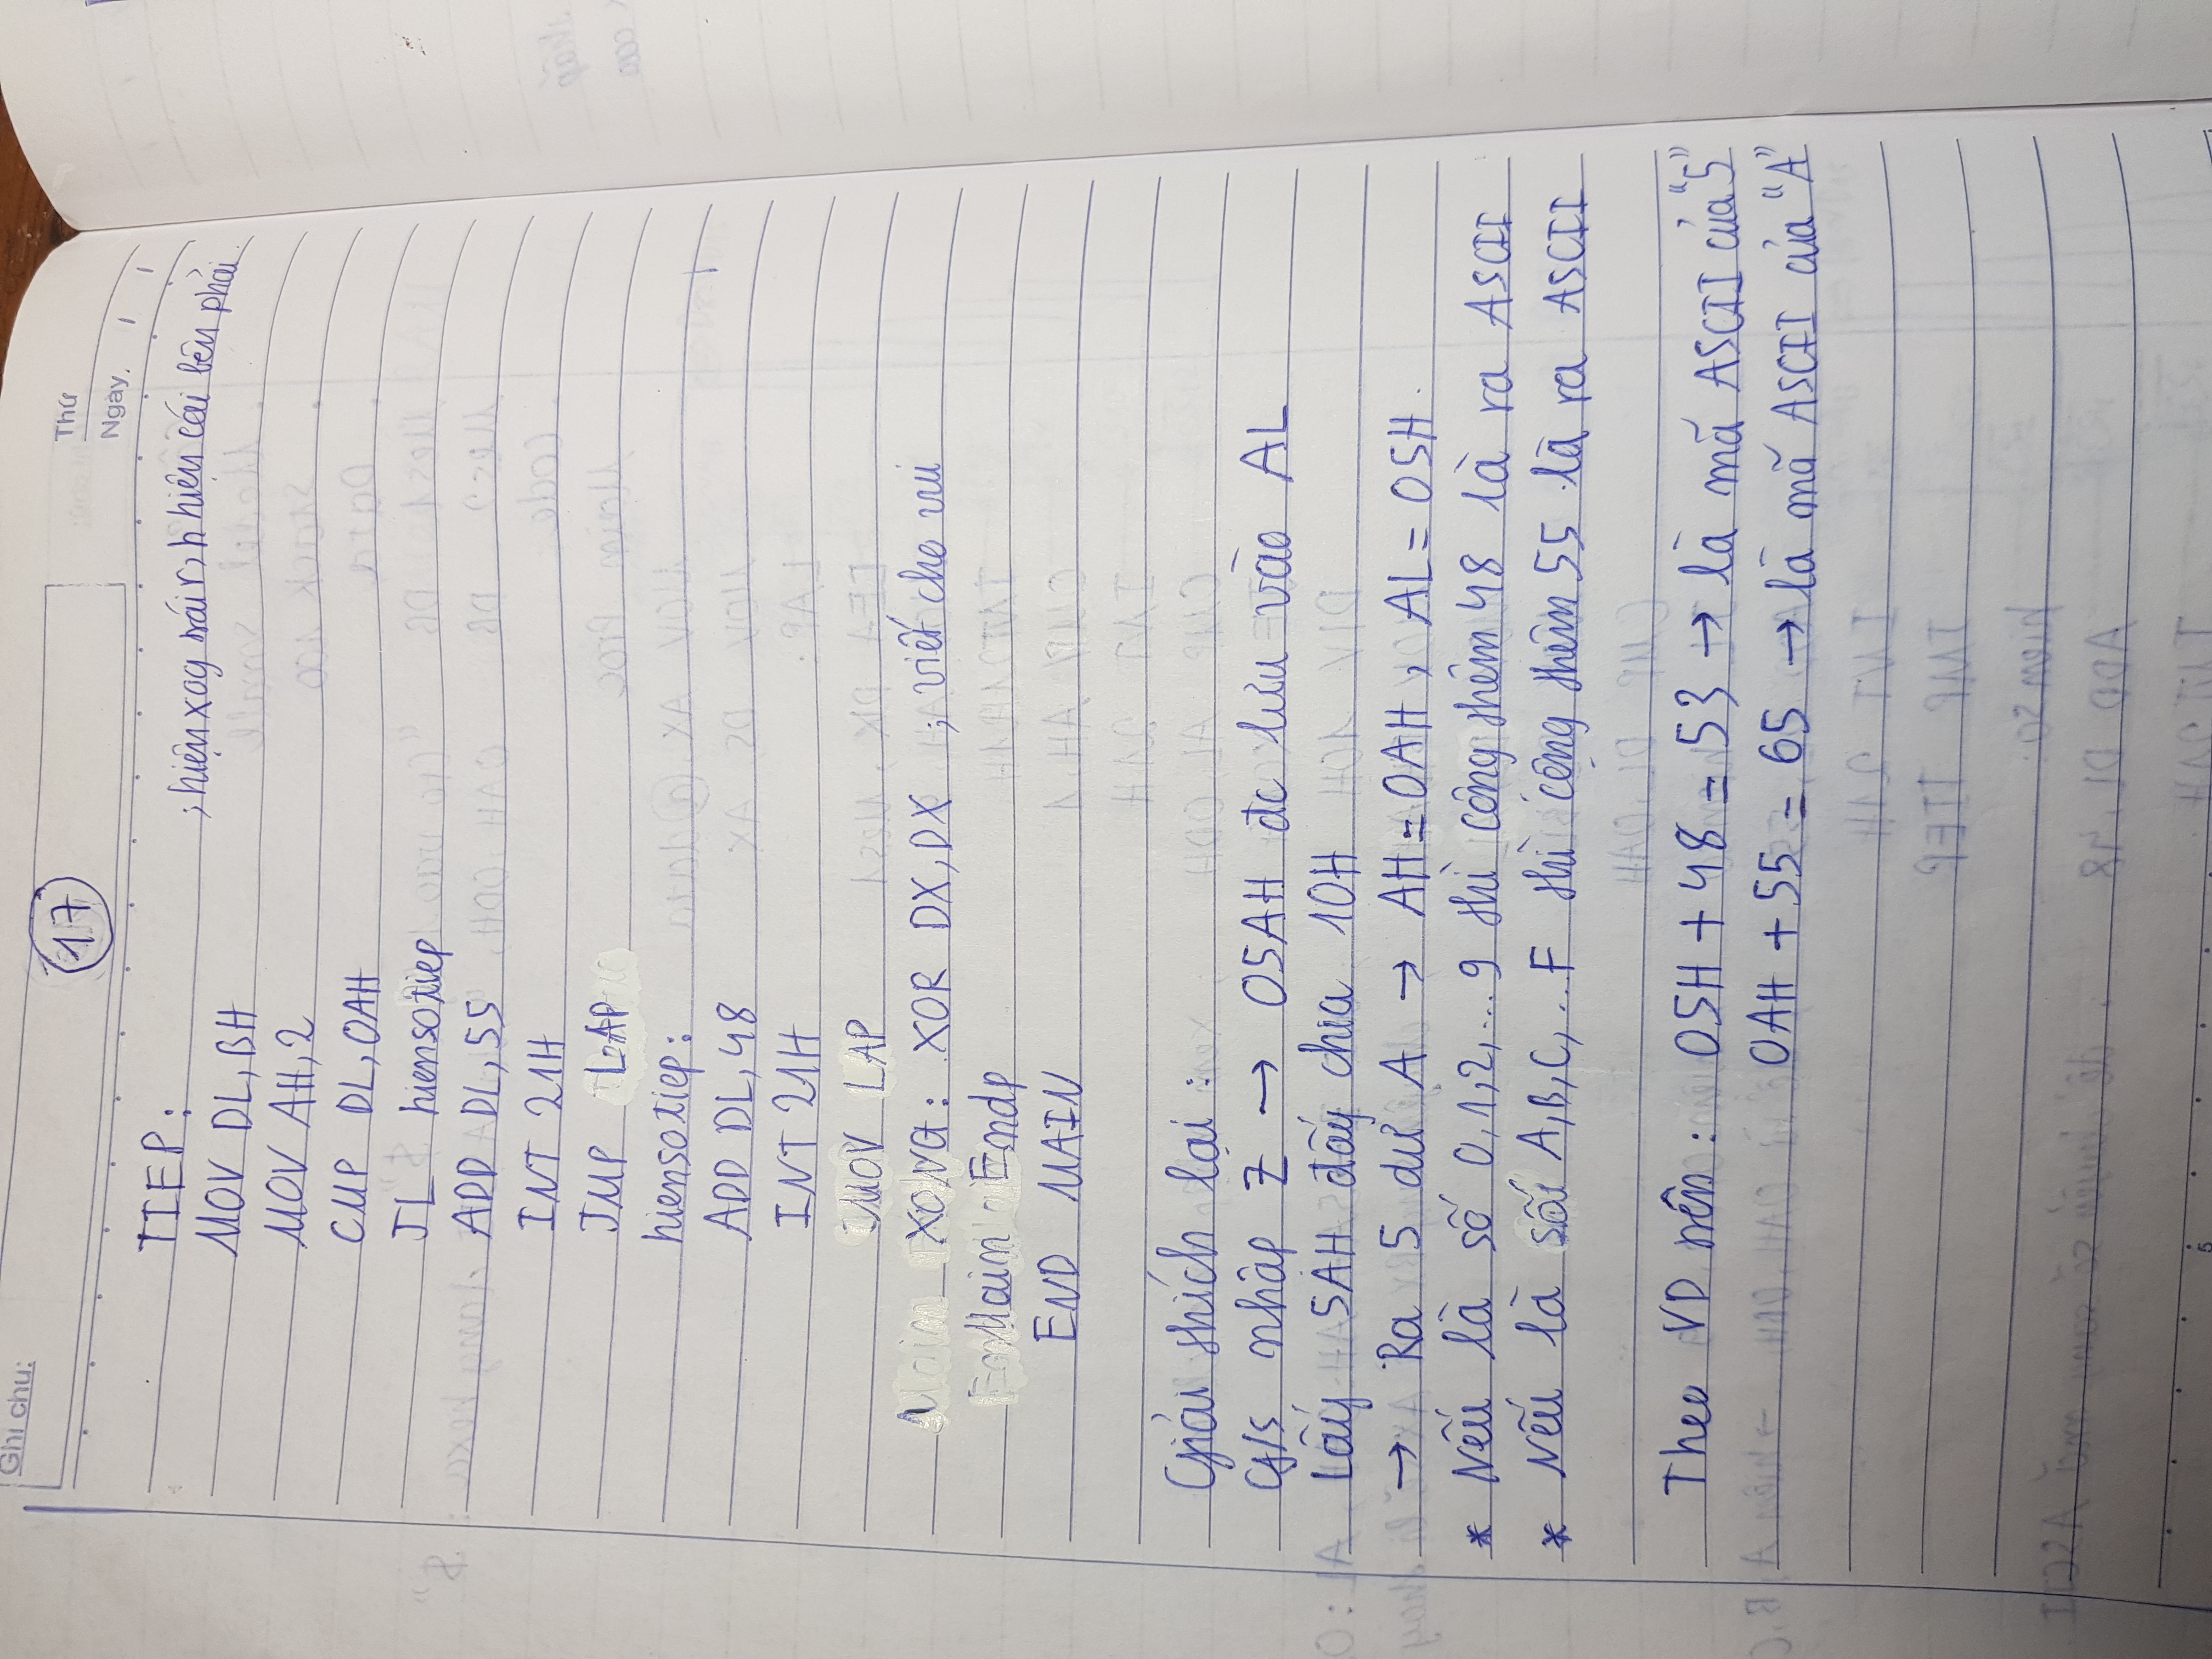 Ghi chú:
17
Thứ
Ngày.
TIEP: ; hiện xog trái r, h hiện cái bên phải
MOV DL, BH
MOV AH, 2
CMP DL, 0AH
JL hiensotiep
ADD DL, 55
INT 21H
JMP LAP
hiensotiep:
ADD DL, 48
INT 21H
MOV LAP
XONG: XOR DX, DX ; viết cho vui
Main Endp
END MAIN
Giải thích lại:
G/s nhập Z → 05AH đc lưu vào AL
Lấy 5AH đấy chia 10H
→ Ra 5 dư A → AH = 0AH, AL = 05H.
* Nếu là số 0,1,2,...9 thì cộng thêm 48 là ra ASCII
* Nếu là số A,B,C,...F thì cộng thêm 55 là ra ASCII
Theo VD trên: 05H + 48 = 53 → là mã ASCII của "5"
0AH + 55 = 65 → là mã ASCII của "A"
5